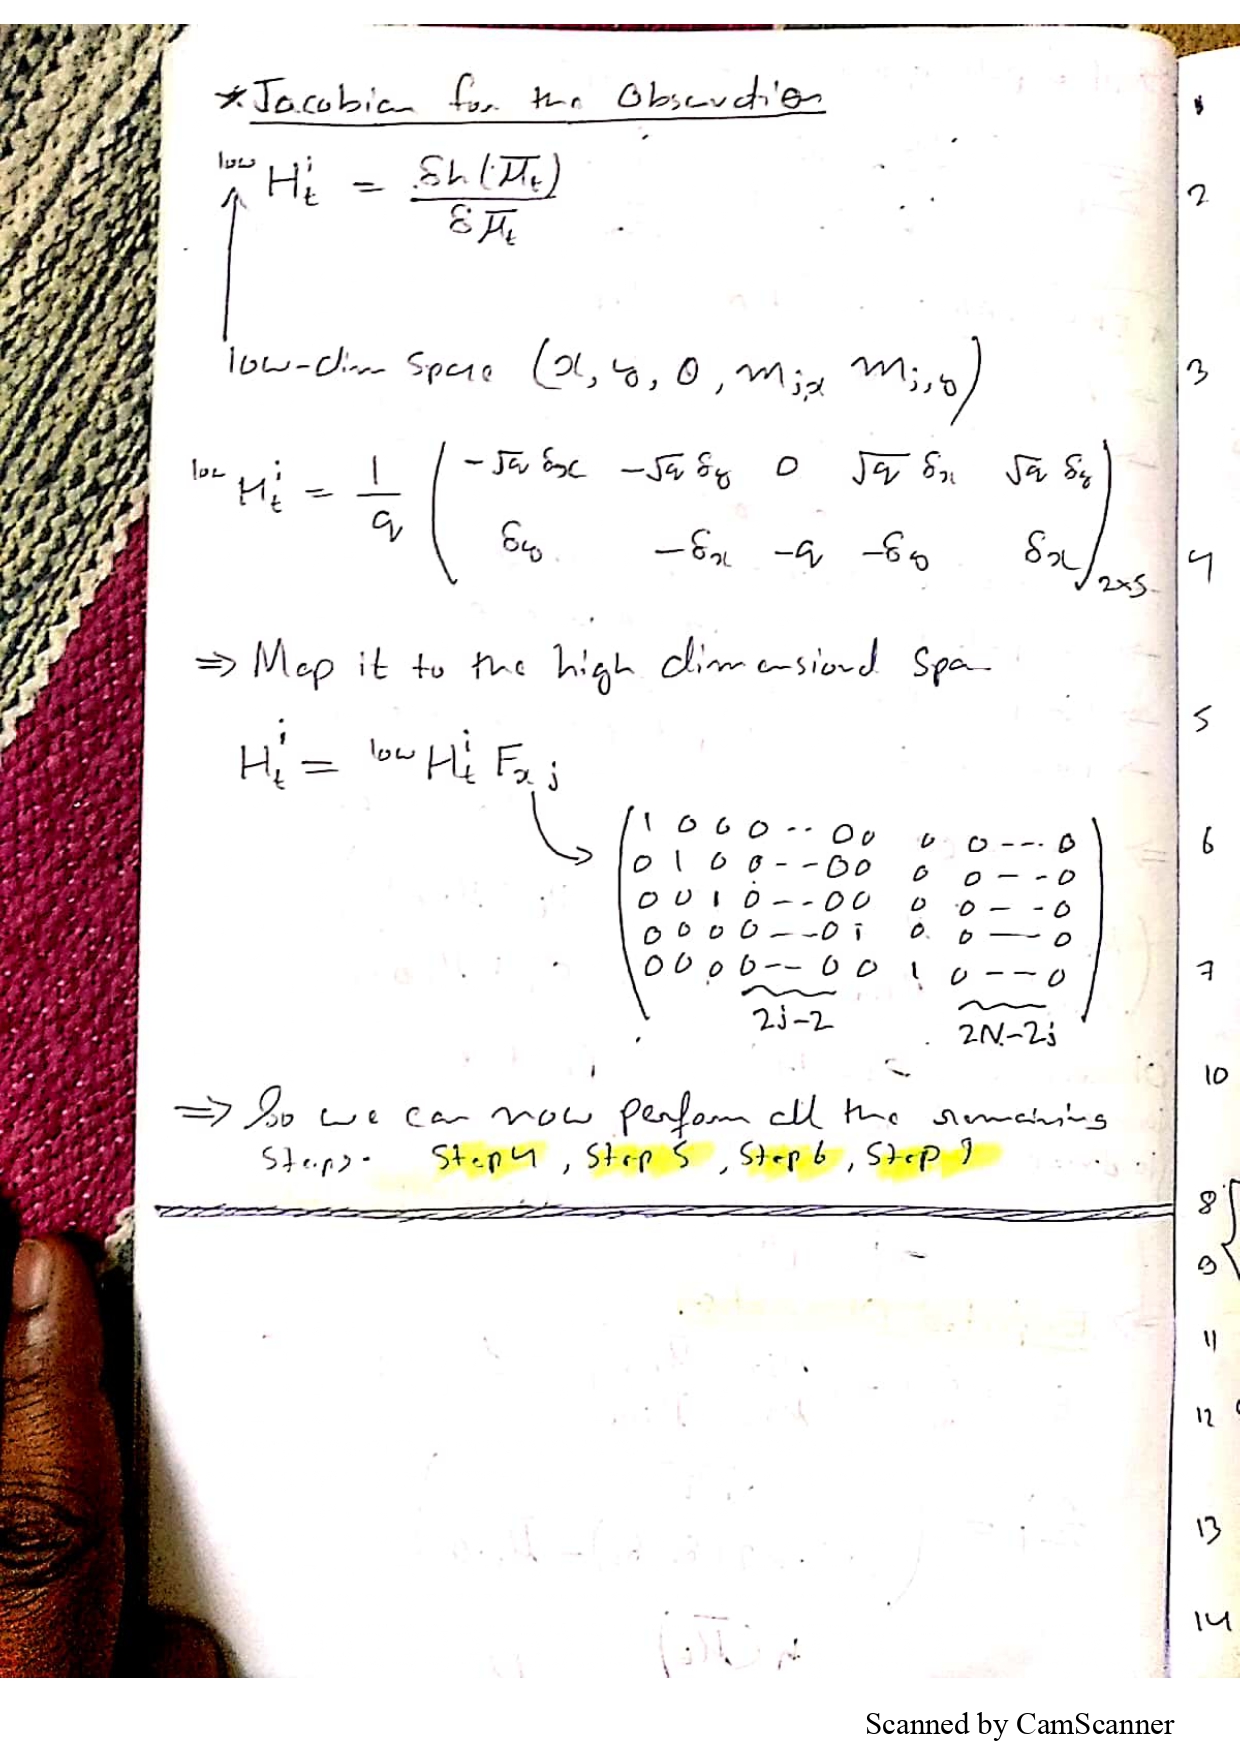 * Jacobian for the Observation
low H_t^i = δh(μ̄_t) / δμ̄_t
low-dim space (x, y, θ, m_{j,x} m_{j,y})
low H_t^i = 1/q ( -√q δx -√q δy 0 √q δx √q δy
δy -δx -q -δy δx )_{2×5}
⇒ Map it to the high dimensional Spa
H_t^i = low H_t^i F_{x,j}
1 0 0 0 -- 0 0 0 0 --- 0
0 1 0 0 -- 0 0 0 0 -- 0
0 0 1 0 -- 0 0 0 0 -- 0
0 0 0 0 -- 0 1 0 0 -- 0
0 0 0 0 -- 0 0 1 0 -- 0
2j-2 2N-2j
⇒ So we can now perform all the remaining
Steps. Step 4, Step 5, Step 6, Step 7
1
2
3
4
5
6
7
10
8
9
11
12
13
14
Scanned by CamScanner